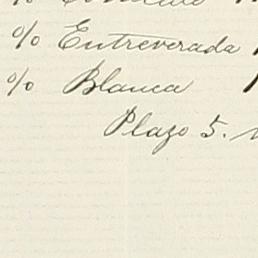 % Entreverada
% Blanca
Plazo 5.